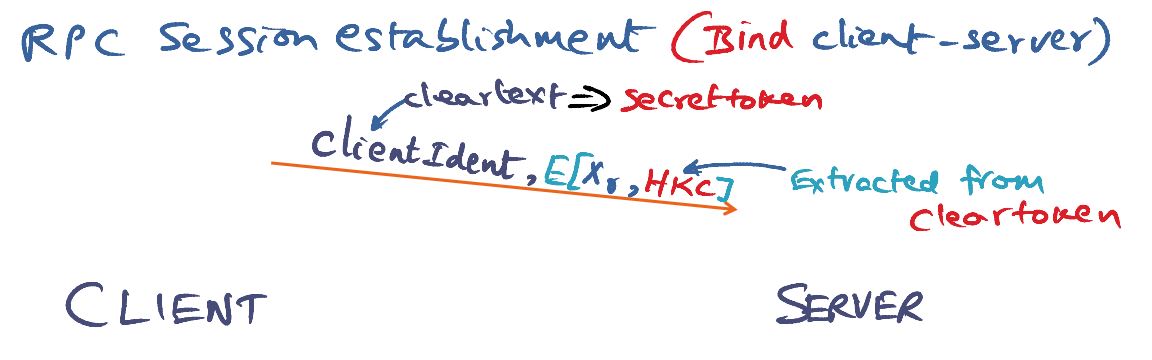 RPC Session establishment (Bind client-server)
cleartext ⇒ secrettoken
ClientIdent, E[Xr, HKC]
Extracted from
cleartoken
CLIENT SERVER